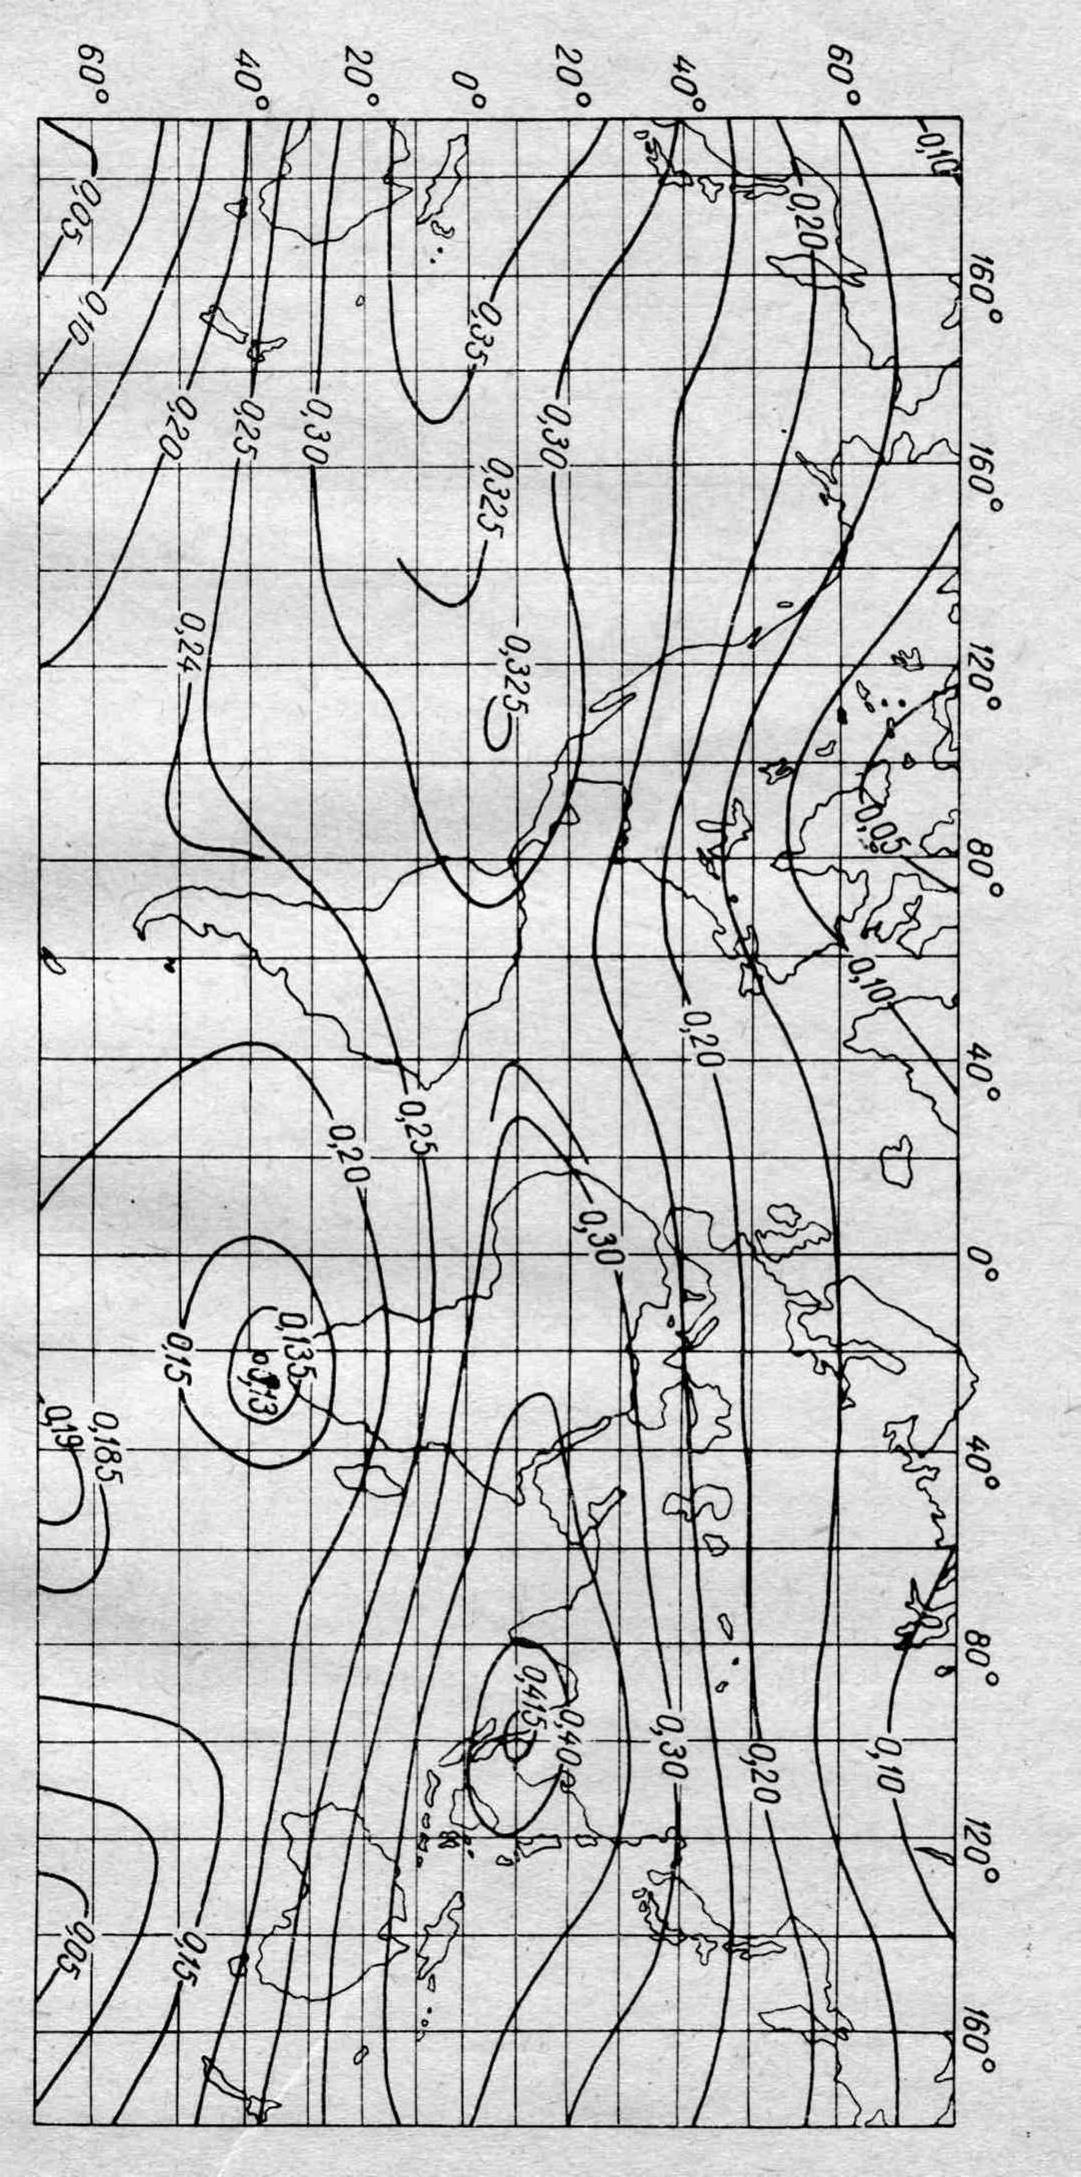 60° 40° 20° 0° 20° 40° 60°
160° 160° 120° 80° 40° 0° 40° 80° 120° 160°
0,10
0,20
0,05
0,10
0,35
0,20
0,25
0,30
0,30
0,325
0,24
0,325
0,05
0,10
0,20
0,25
0,20
0,30
0,135
0,13
0,15
0,185
0,19
0,415
0,40
0,30
0,20
0,10
0,05
0,15